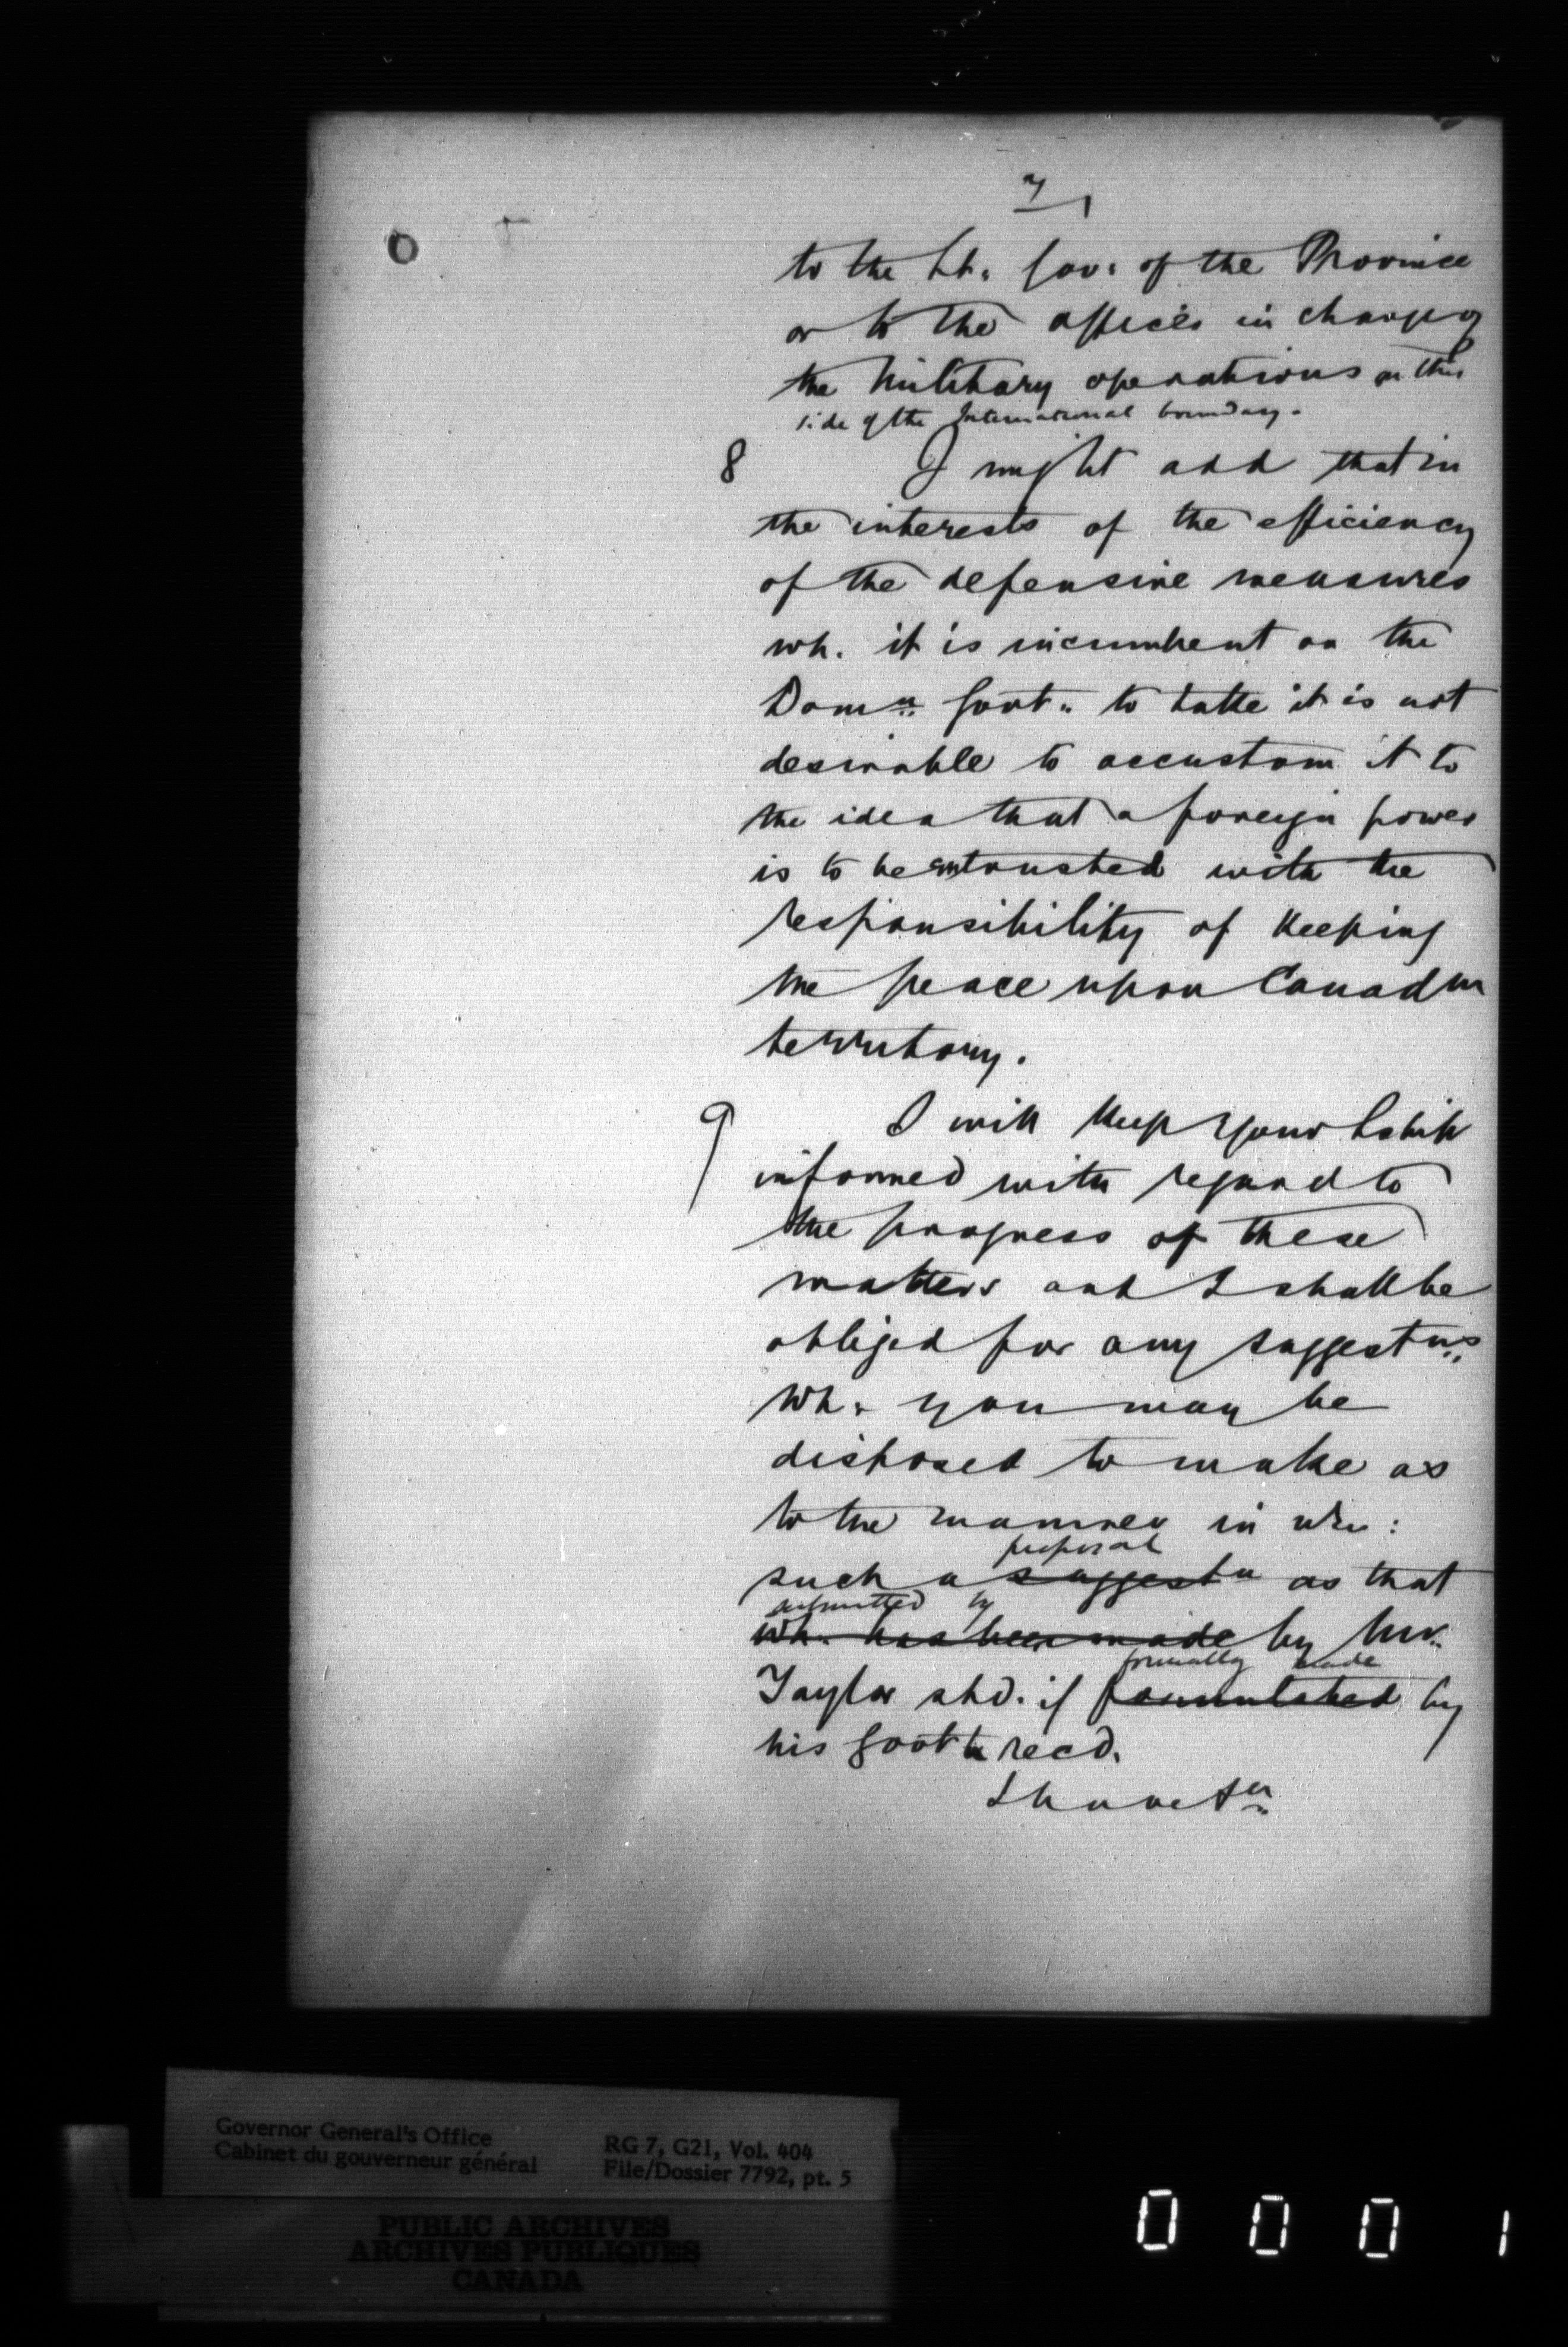 7
to the Lt. Gov. of the Province
or to the officer in charge of
the Military operations on this
side of the International boundary.
8 I might add that in
the interests of the efficiency
of the defensive measures
wh. it is incumbent on the
Domn. Govt. to take it is not
desirable to accustom it to
the idea that a foreign power
is to be entrusted with the
responsibility of keeping
the peace upon Canadian
territory.
9 I will keep your Lship
informed with regard to
the progress of these
matters and I shall be
obliged for any suggestns
wh. you may be
disposed to make as
to the manner in wh:
proposal
such a suggestn as that
submitted by
wh. has been made by Mr.
formally made
Taylor shd. if formulated by
his Govt be recd.
I have &c
Governor General's Office
Cabinet du gouverneur général
RG 7, G21, Vol. 404
File/Dossier 7792, pt. 5
PUBLIC ARCHIVES
ARCHIVES PUBLIQUES
CANADA
0 0 0 1